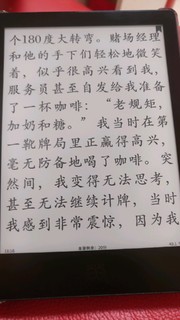 个180度大转弯。赌场经理
和他的手下们轻松地微笑
着，似乎很高兴看到我，
服务员甚至自发给我准备
了一杯咖啡：“老规矩，
加奶和糖。”我当时在第
一靴牌局里正赢得高兴，
毫无防备地喝了咖啡。突
然间，我变得无法思考，
甚至无法继续计牌，当时
我感到非常震惊，因为我